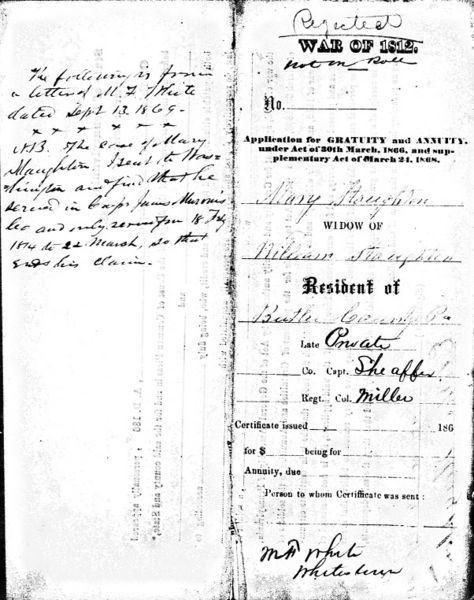 The following is from
a letter of M. F. White
dated Sept 13. 1869.
x x x x x x x
The case of Mary
Staughton I sent to Wash-
ington and find that he
served in Capt James
Co and only served from 18 Feby
1814 to 22 March, so that
ends his claim.
Rejected
WAR OF 1812.
not on Roll
No.
Application for GRATUITY and ANNUITY,
under Act of 30th March, 1866, and sup-
plementary Act of March 24, 1868.
Mary Staughton
WIDOW OF
William Staughton
Resident of
Butler County Pa
Late Private
Co. Capt. Sheaffer
Regt. Col. Miller
Certificate issued 186
for $ being for
Annuity, due
Person to whom Certificate was sent:
M F White